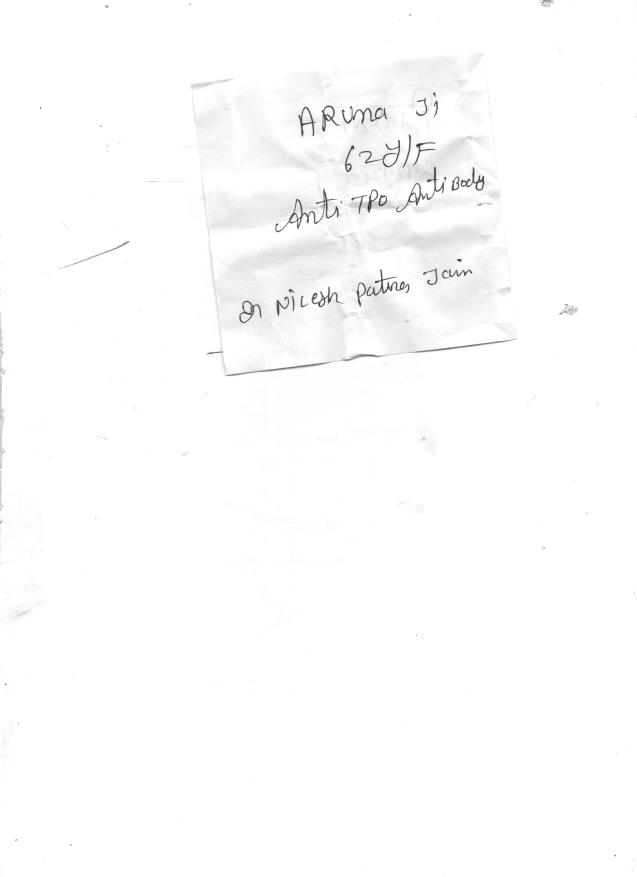 ARUna Ji
62Y/F
Anti TPO AntiBody
Dr Nilesh Jain